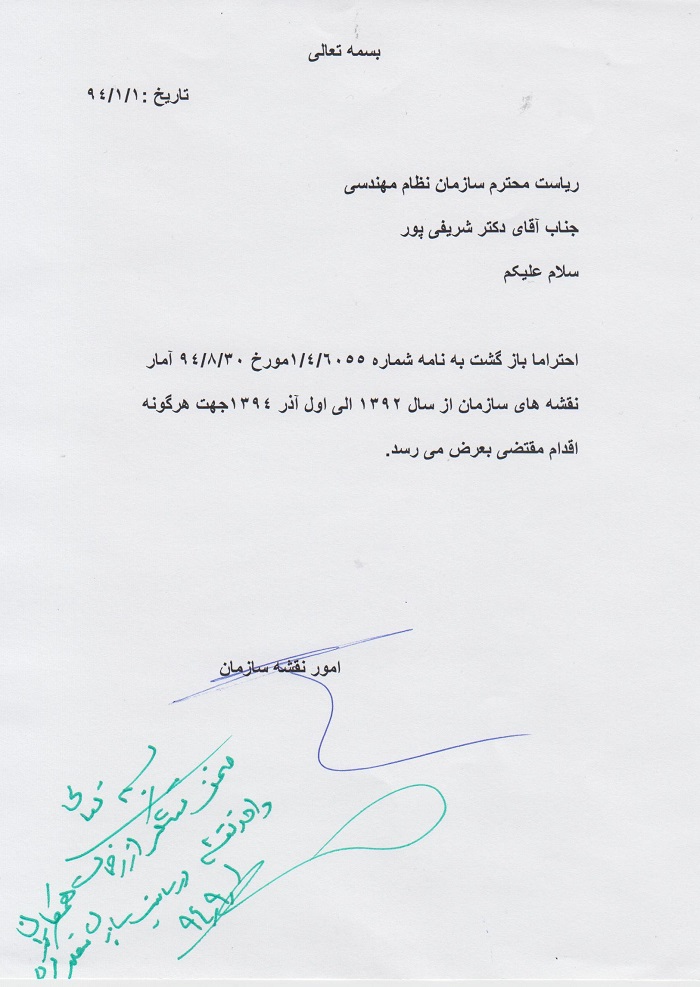 بسمه تعالی
تاریخ :۹٤/۱/۱
ریاست محترم سازمان نظام مهندسی
جناب آقای دکتر شریفی پور
سلام علیکم
احتراما باز گشت به نامه شماره ۱/٤/٦۰٥٥مورخ ۹٤/۸/۳۰ آمار
نقشه های سازمان از سال ۱۳۹۲ الی اول آذر ۱۳۹٤جهت هرگونه
اقدام مقتضی بعرض می رسد.
امور نقشه سازمان
ضمن تشکر از زحمات همکاران
واحد نقشه در سایت سازمان